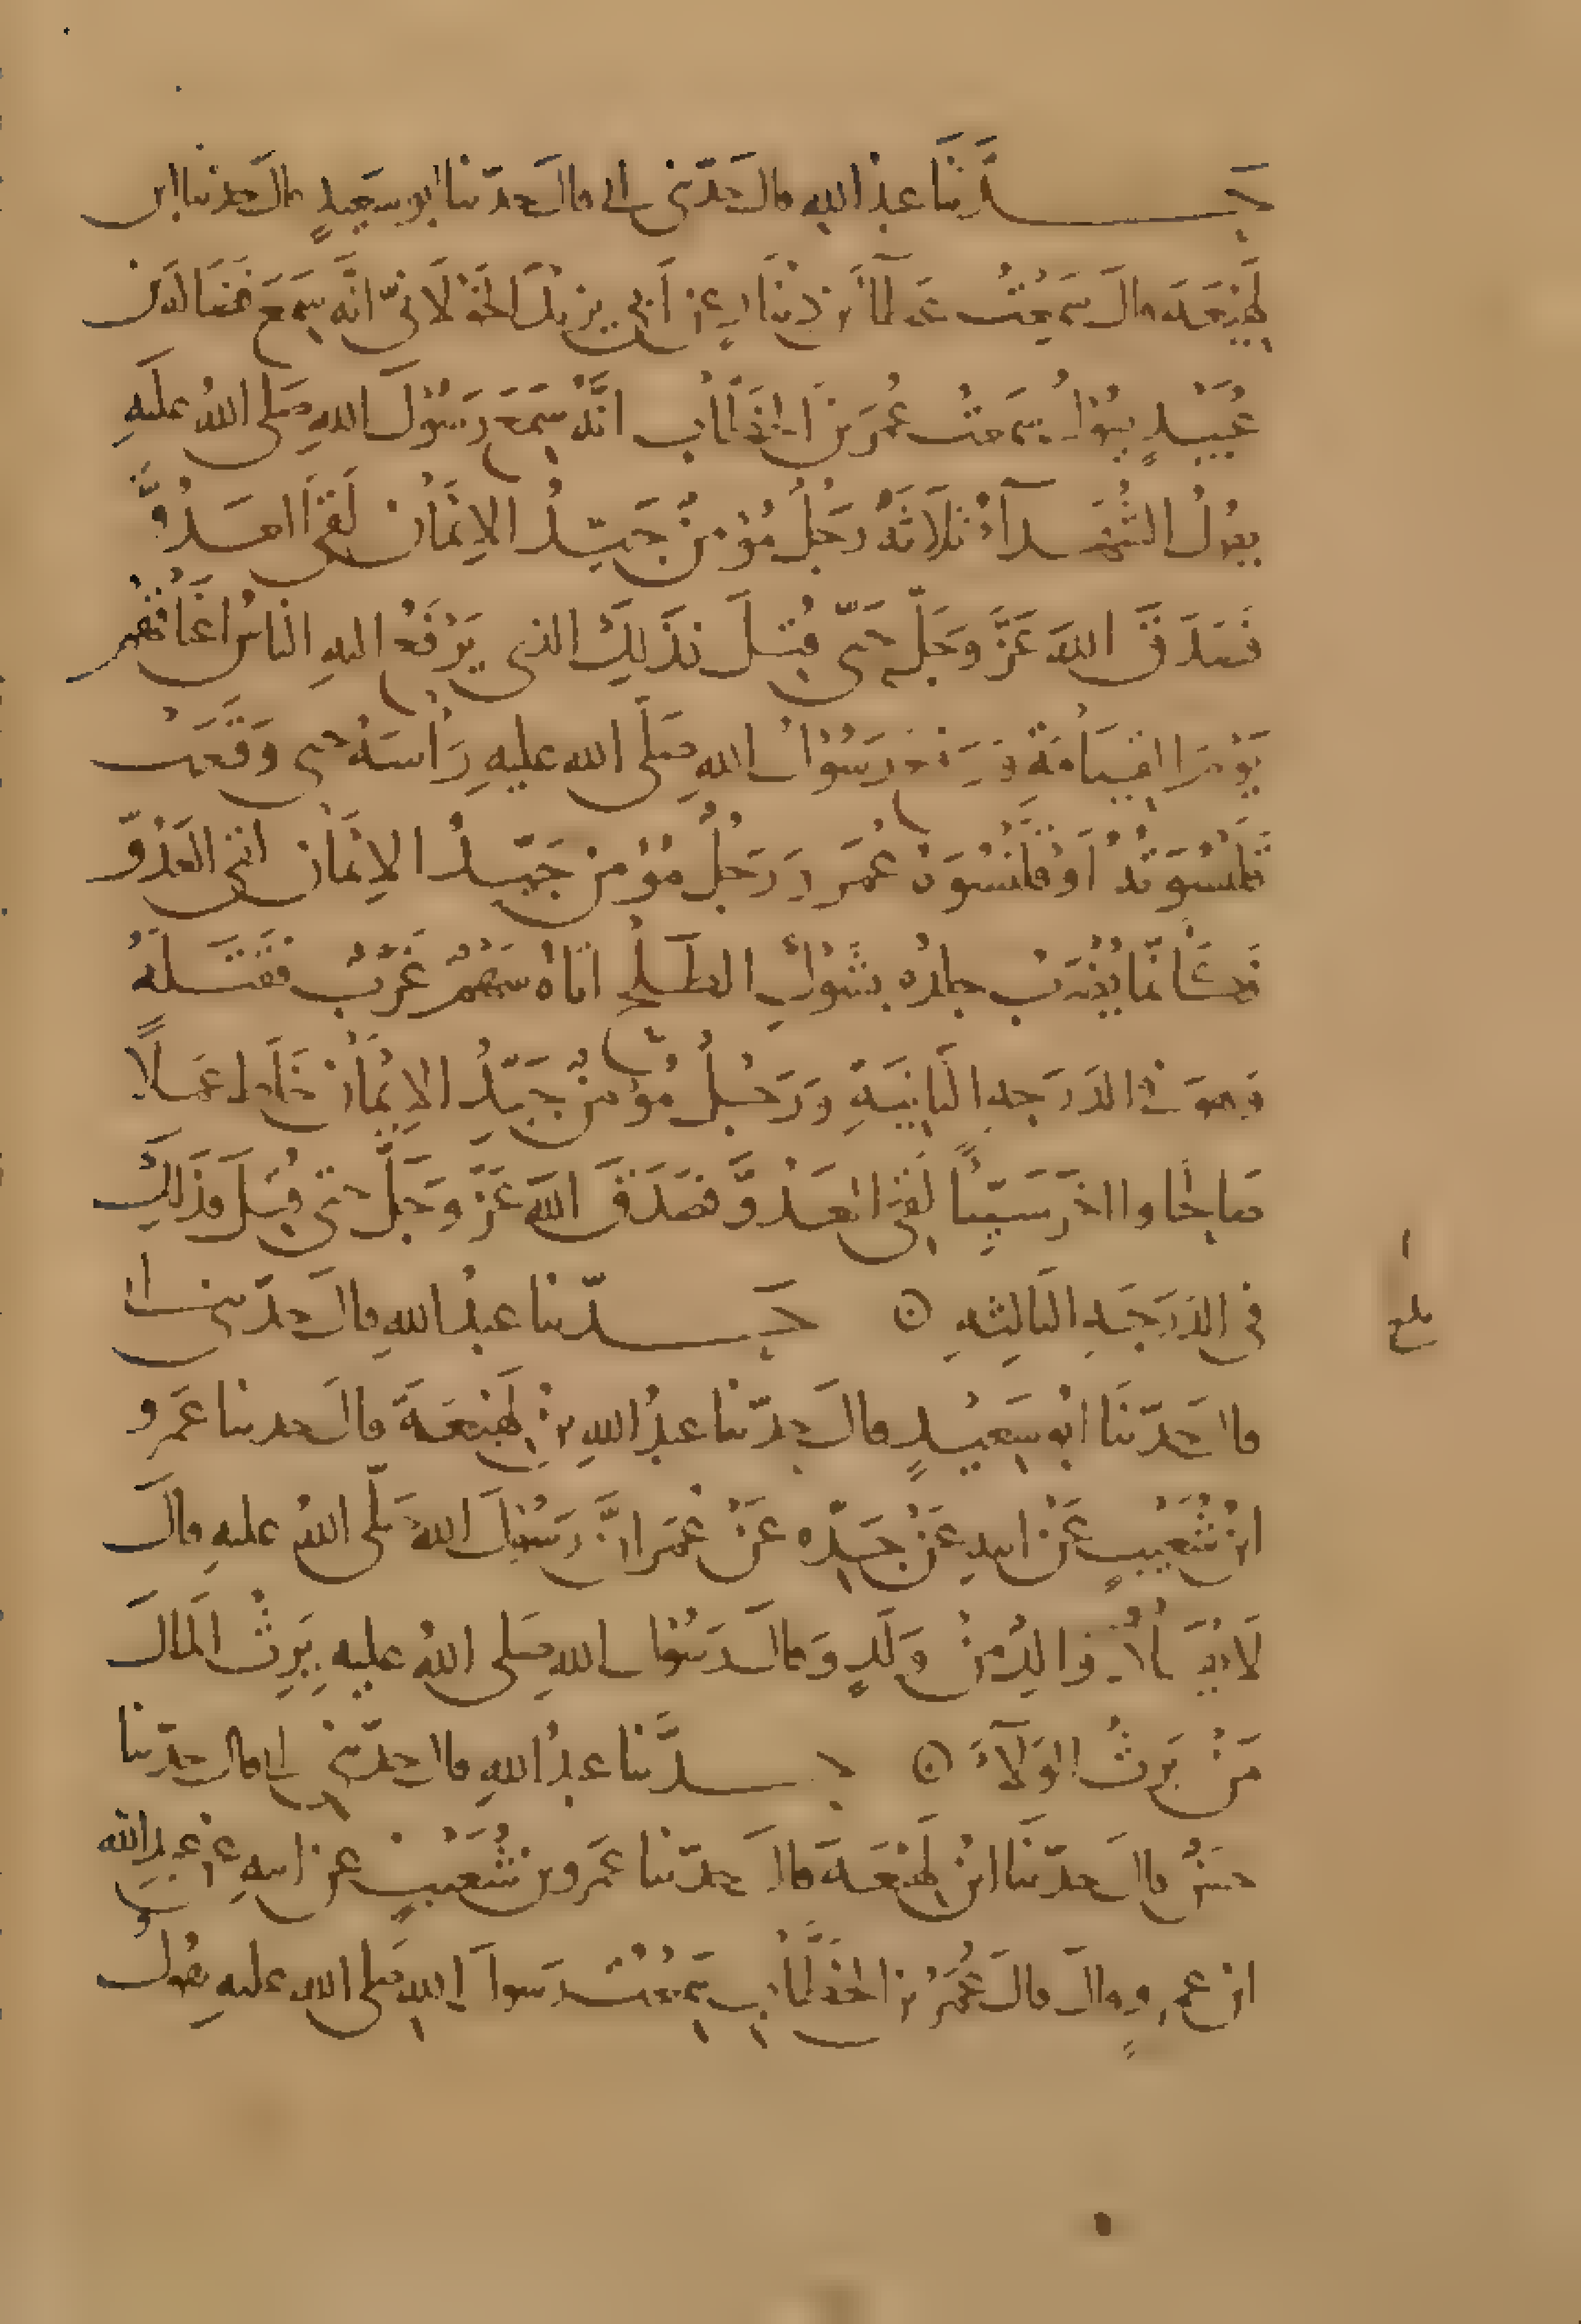 حَدَّثَنَا عبدُ اللهِ قالَ حَدَّثني أبي قالَ حدّثنا ابو سَعِيدٍ قالَ حدثنا ابن
لَهِيْعَةَ قالَ سَمِعْتُ عَطَاءَ بن دِيْنَارٍ عن أَبي يَزِيْدَ الخَوْلَانِيّ انَّه سَمِعَ فَضَالَةَ بن
عُبَيْدٍ يقُوْلُ سَمِعتُ عُمَرَ بنَ الخَطَّابِ انَّهُ سَمِعَ رَسُوْلَ اللهِ صَلى اللهُ عليَهِ
يقولُ الشُّهَدَآءُ ثَلَاثَةٌ رَجُلٌ مُؤْمِنٌ جَيِّدُ الاِيْمَانِ لَقِيَ العَدُوَّ
فَصَدَقَ اللهَ عَزَّ وَجَلَّ حَتَّى قُتِلَ فَذَلِكَ الذي يَرْفَعُ اليهِ النَّاسُ اعْنَاقَهُم
يَوْمَ القِيَامَةِ وَرَفَعَ رَسُوْلُ اللهِ صَلَّى الله عليهِ رَأْسَهُ حتى وَقَعَتْ
قَلَنْسُوَتُهُ اَوْ قَلَنْسُوَةُ عُمَرَ وَرَجُلٌ مُؤْمِنٌ جَيِّدُ الاِيْمَانِ لقي العَدُوَّ
فَكَأَنَّمَا يُضْرَبُ جِلدُه بشَوْكِ الطَّلْحِ اتَاهُ سَهْمٌ غَرْبٌ فَقَتَلَهُ
وَهوَ في الدَرَجةِ الثَّانِيَةِ وَرَجُلٌ مُؤْمِنٌ جَيِّدُ الاِيْمَانِ خَلَطَ عَمَلًا
صَالِحًا وااخَرَ سَيِّئًا لَقِيَ العَدُوَّ فصَدَقَ اللهَ عَزَّ وَجَلَّ حتّى قُتِلَ فذَلِكَ
في الدَرَجَةِ الثالِثةِ ۞ حَدّثنا عبدُ اللهِ قالَ حدّثني أبي
قالَ حَدّثَنَا ابُو سَعِيْدٍ قالَ حدّثنا عبدُ اللهِ بنُ لَهِيْعَةَ قالَ حدثنا عَمرو
ابنُ شُعَيْبٍ عَنْ ابيهِ عَنْ جَدِّه عَنْ عُمَرَ انَّ رَسُوْلَ اللهِ صَلّى اللهُ عليهِ قالَ
لَا يُقَادُ وَالِدٌ مِنْ وَلَدٍ وَقالَ رَسُولُ اللهِ صَلى اللهُ عليهِ يَرِثُ المَالَ
مَنْ يَرِثُ الوَلَآءَ ۞ حَدَّثنا عبدُ اللهِ قالَ حدّثني أبي قال حدّثنا
حسَنٌ قالَ حدّثنَا ابنُ لَهِيْعَةَ قالَ حدّثنا عَمرو بن شُعَيْبٍ عن ابيهِ عن عَبدِ الله
ابن عمرٍو قالَ قالَ عُمَرُ بنُ الخَطَّابِ سَمِعْتُ رَسولَ اللهِ صَلى الله عليهِ يقولُ
بلغ